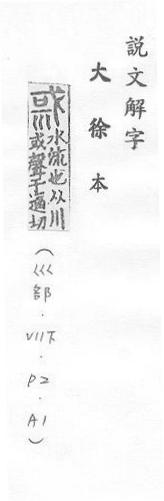 說文解字
大徐本
水流也从川
或聲于逼切
（巛部．VII下．P2．A1）